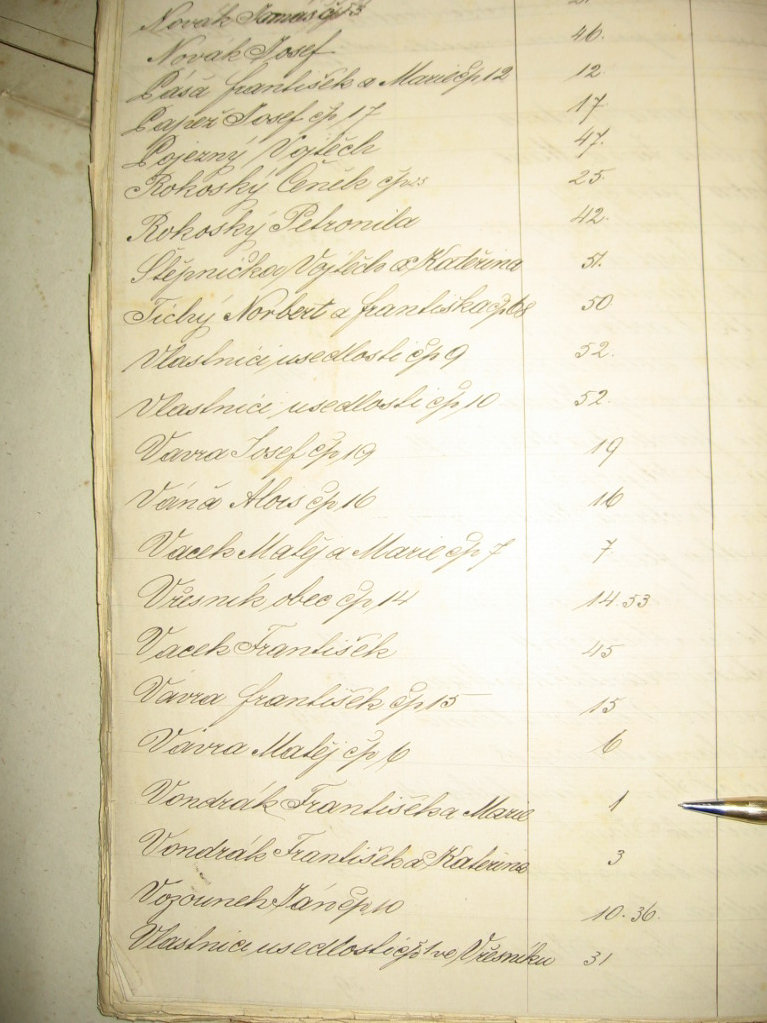 Novák Tomáš čp 53 21.
Novák Josef 46.
Páša František a Marie čp 12 12
Papež Josef čp 17 17
Pojezný Vojtěch 47.
Rokoský Čeněk čp 25 25.
Rokoský Petronila 42.
Štěpnička Vojtěch a Kateřina 51.
Tichý Norbert a Františka čp 68 50
Vlastníci usedlosti čp 9 52.
Vlastníci usedlosti čp 10 52
Vavra Josef čp 19 19
Váňa Alois čp 16 16
Vacek Matěj a Marie čp 7 7
Vřesník obec čp 14 14. 53
Vacek František 45
Vavra František čp 15 15
Vávra Matěj čp 6 6
Vondrák František a Marie 1
Vondrák František a Kateřina 3
Vozounek Ján čp 10 10. 36.
Vlastníci usedlosti čp 1 ve Vřesníku 31